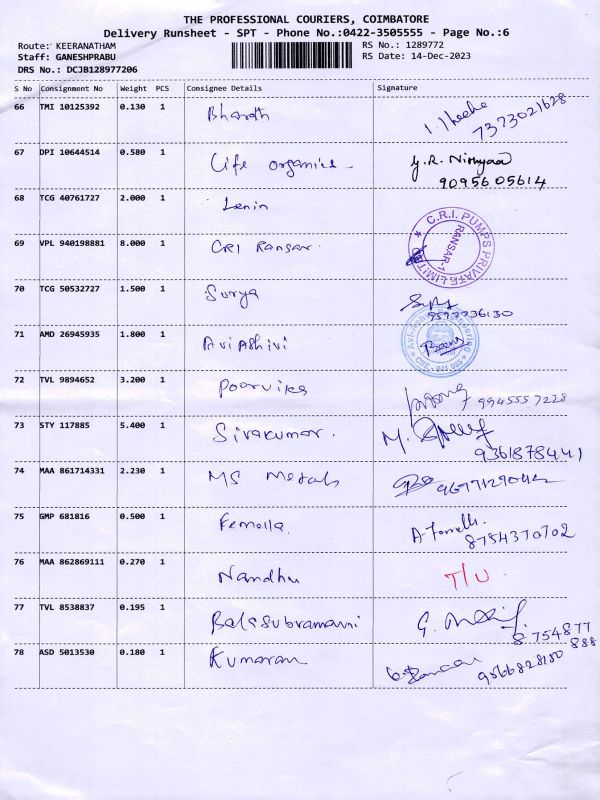 THE PROFESSIONAL COURIERS, COIMBATORE
Delivery Runsheet - SPT - Phone No.:0422-3505555 - Page No.:6
Route: KEERANATHAM RS No.: 1289772
Staff: GANESHPRABU RS Date: 14-Dec-2023
DRS No.: DCJB128977206
S No Consignment No Weight PCS Consignee Details Signature
66 TMI 10125392 0.130 1 Bharath 7373021628
67 DPI 10644514 0.580 1 Life organics 9095605614
68 TCG 40761727 2.000 1 Lenin
69 VPL 940198881 8.000 1 CRI Ransar. C.R.I. PUMPS PRIVATE LIMITED RANSAR-1
70 TCG 50532727 1.500 1 Surya 9597736130
71 AMD 26945935 1.800 1 AviAshivi
72 TVL 9894652 3.200 1 Poorvika 9945557228
73 STY 117885 5.400 1 Sivakumar. 9361878441
74 MAA 861714331 2.230 1 MS Metals
75 GMP 681816 0.500 1 Femella. 8754370702
76 MAA 862869111 0.270 1 Nandhu T/U.
77 TVL 8538837 0.195 1 Balasubramani 8754877
888
78 ASD 5013530 0.180 1 Kumaran 9566828180